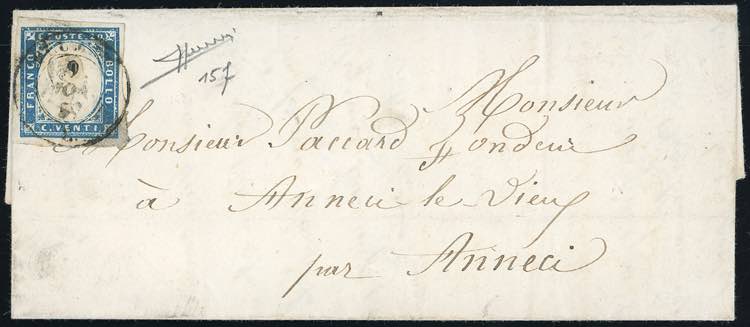 C. POSTE 20
FRANCO
BOLLO
C. VENTI
9
15f
Monsieur
Monsieur Paccard Fondeur
à Anneci-le-Vieux
par Anneci